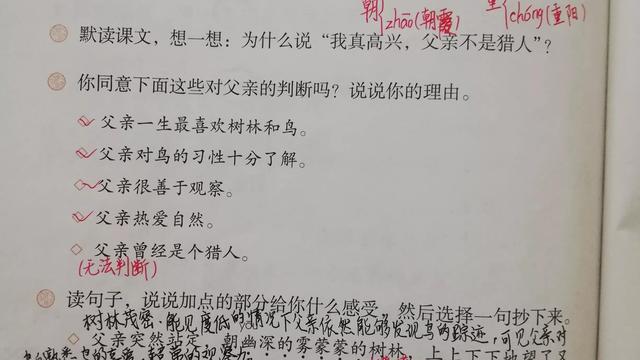 朝 zhāo(朝霞) 重 chóng(重阳)
默读课文，想一想：为什么说“我真高兴，父亲不是猎人”？
你同意下面这些对父亲的判断吗？说说你的理由。
父亲一生最喜欢树林和鸟。
父亲对鸟的习性十分了解。
父亲很善于观察。
父亲热爱自然。
父亲曾经是个猎人。
(无法判断)
读句子，说说加点的部分给你什么感受，然后选择一句抄下来。
树林茂密，能见度低的情况下父亲依然能够发现鸟的踪迹，可见父亲对
父亲突然站定，朝幽深的雾蒙蒙的树林，上上下下